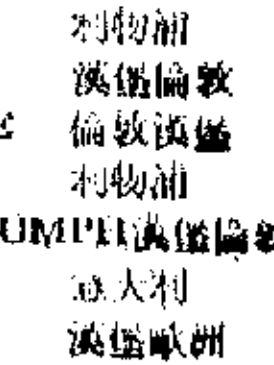 利物浦
漢堡倫敦
倫敦漢堡
利物浦
UMPH漢堡倫敦
意大利
漢堡歐洲